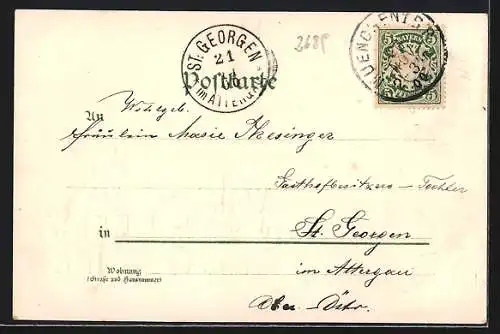 2685
ST. GEORGEN
21
im ATTERGAU
MUENCHEN
5 BAYERN 5
5 5
Postkarte
An Wohlgeb.
Fräulein Marie Hesinger
Gasthofbesitzers – Tochter
in St. Georgen
im Attergau
Wohnung
(Straße und Hausnummer)
Ober-Östr.